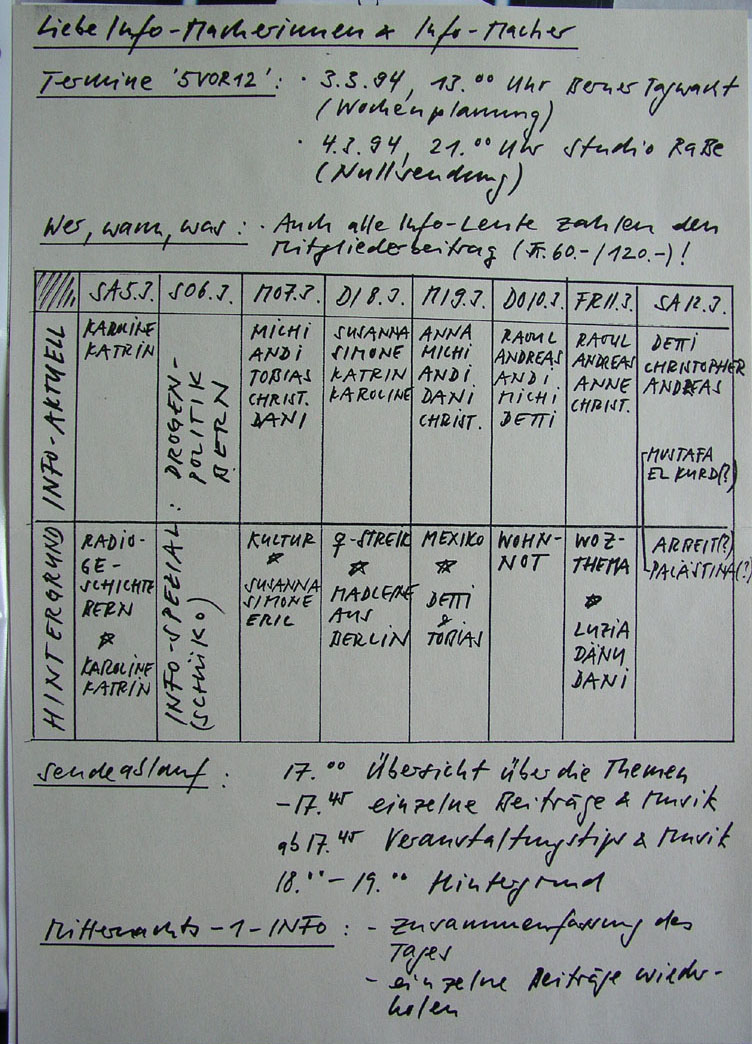 Liebe Info-Macherinnen & Info-Macher
Termine '5VOR12': · 3.3.94, 13.00 Uhr Berner Tagwacht
(Wochenplanung)
· 4.3.94, 21.00 Uhr Studio RaBe
(Nullsendung)
Wer, wann, was: · Auch alle Info-Leute zahlen den
Mitgliederbeitrag (Fr. 60.-/120.-)!
SA 5.3. SO 6.3. MO 7.3. DI 8.3. MI 9.3. DO 10.3. FR 11.3. SA 12.3.
INFO-AKTUELL
KAROLINE
KATRIN
INFO-SPEZIAL: DROGEN-
POLITIK
BERN
(SCHÜKO)
MICHI
ANDI
TOBIAS
CHRIST.
DANI
SUSANNA
SIMONE
KATRIN
KAROLINE
ANNA
MICHI
ANDI
DANI
CHRIST.
RAOUL
ANDREAS
ANDI
MICHI
DETTI
RAOUL
ANDREAS
ANNE
CHRIST.
DETTI
CHRISTOPHER
ANDREAS
MUSTAFA
EL KURD(?)
HINTERGRUND
RADIO-
GE-
SCHICHTE
BERN
KAROLINE
KATRIN
KULTUR
SUSANNA
SIMONE
ERIC
♀-STREIK
MADLENE
AUS
BERLIN
MEXIKO
DETTI
&
TOBIAS
WOHN-
NOT
WOZ-
THEMA
LUZIA
DÄNU
DANI
ARBEIT(?)
PALÄSTINA(?)
Sendeablauf: 17.00 Übersicht über die Themen
-17.45 einzelne Beiträge & Musik
ab 17.45 Veranstaltungstips & Musik
18.00-19.00 Hintergrund
Mitternachts-1-INFO: - Zusammenfassung des
Tages
- einzelne Beiträge wieder-
holen